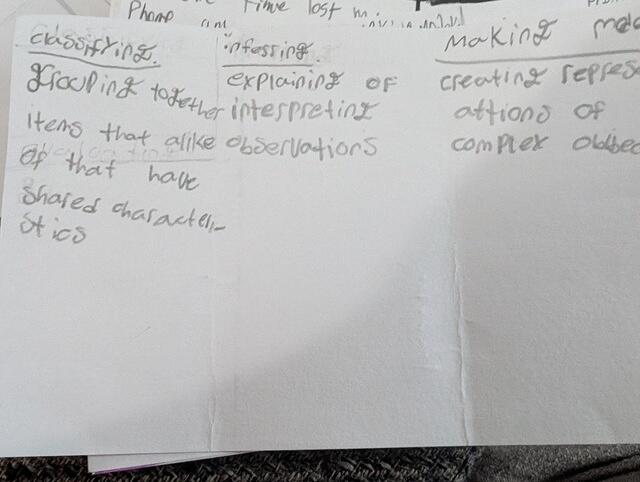 Phone am
Time lost
classifying.
grouping together
items that alike
of that have
shared characteri-
stics
infessing.
explaining of
interpreting
observations
making mod
creating represe
attions of
complex obbec